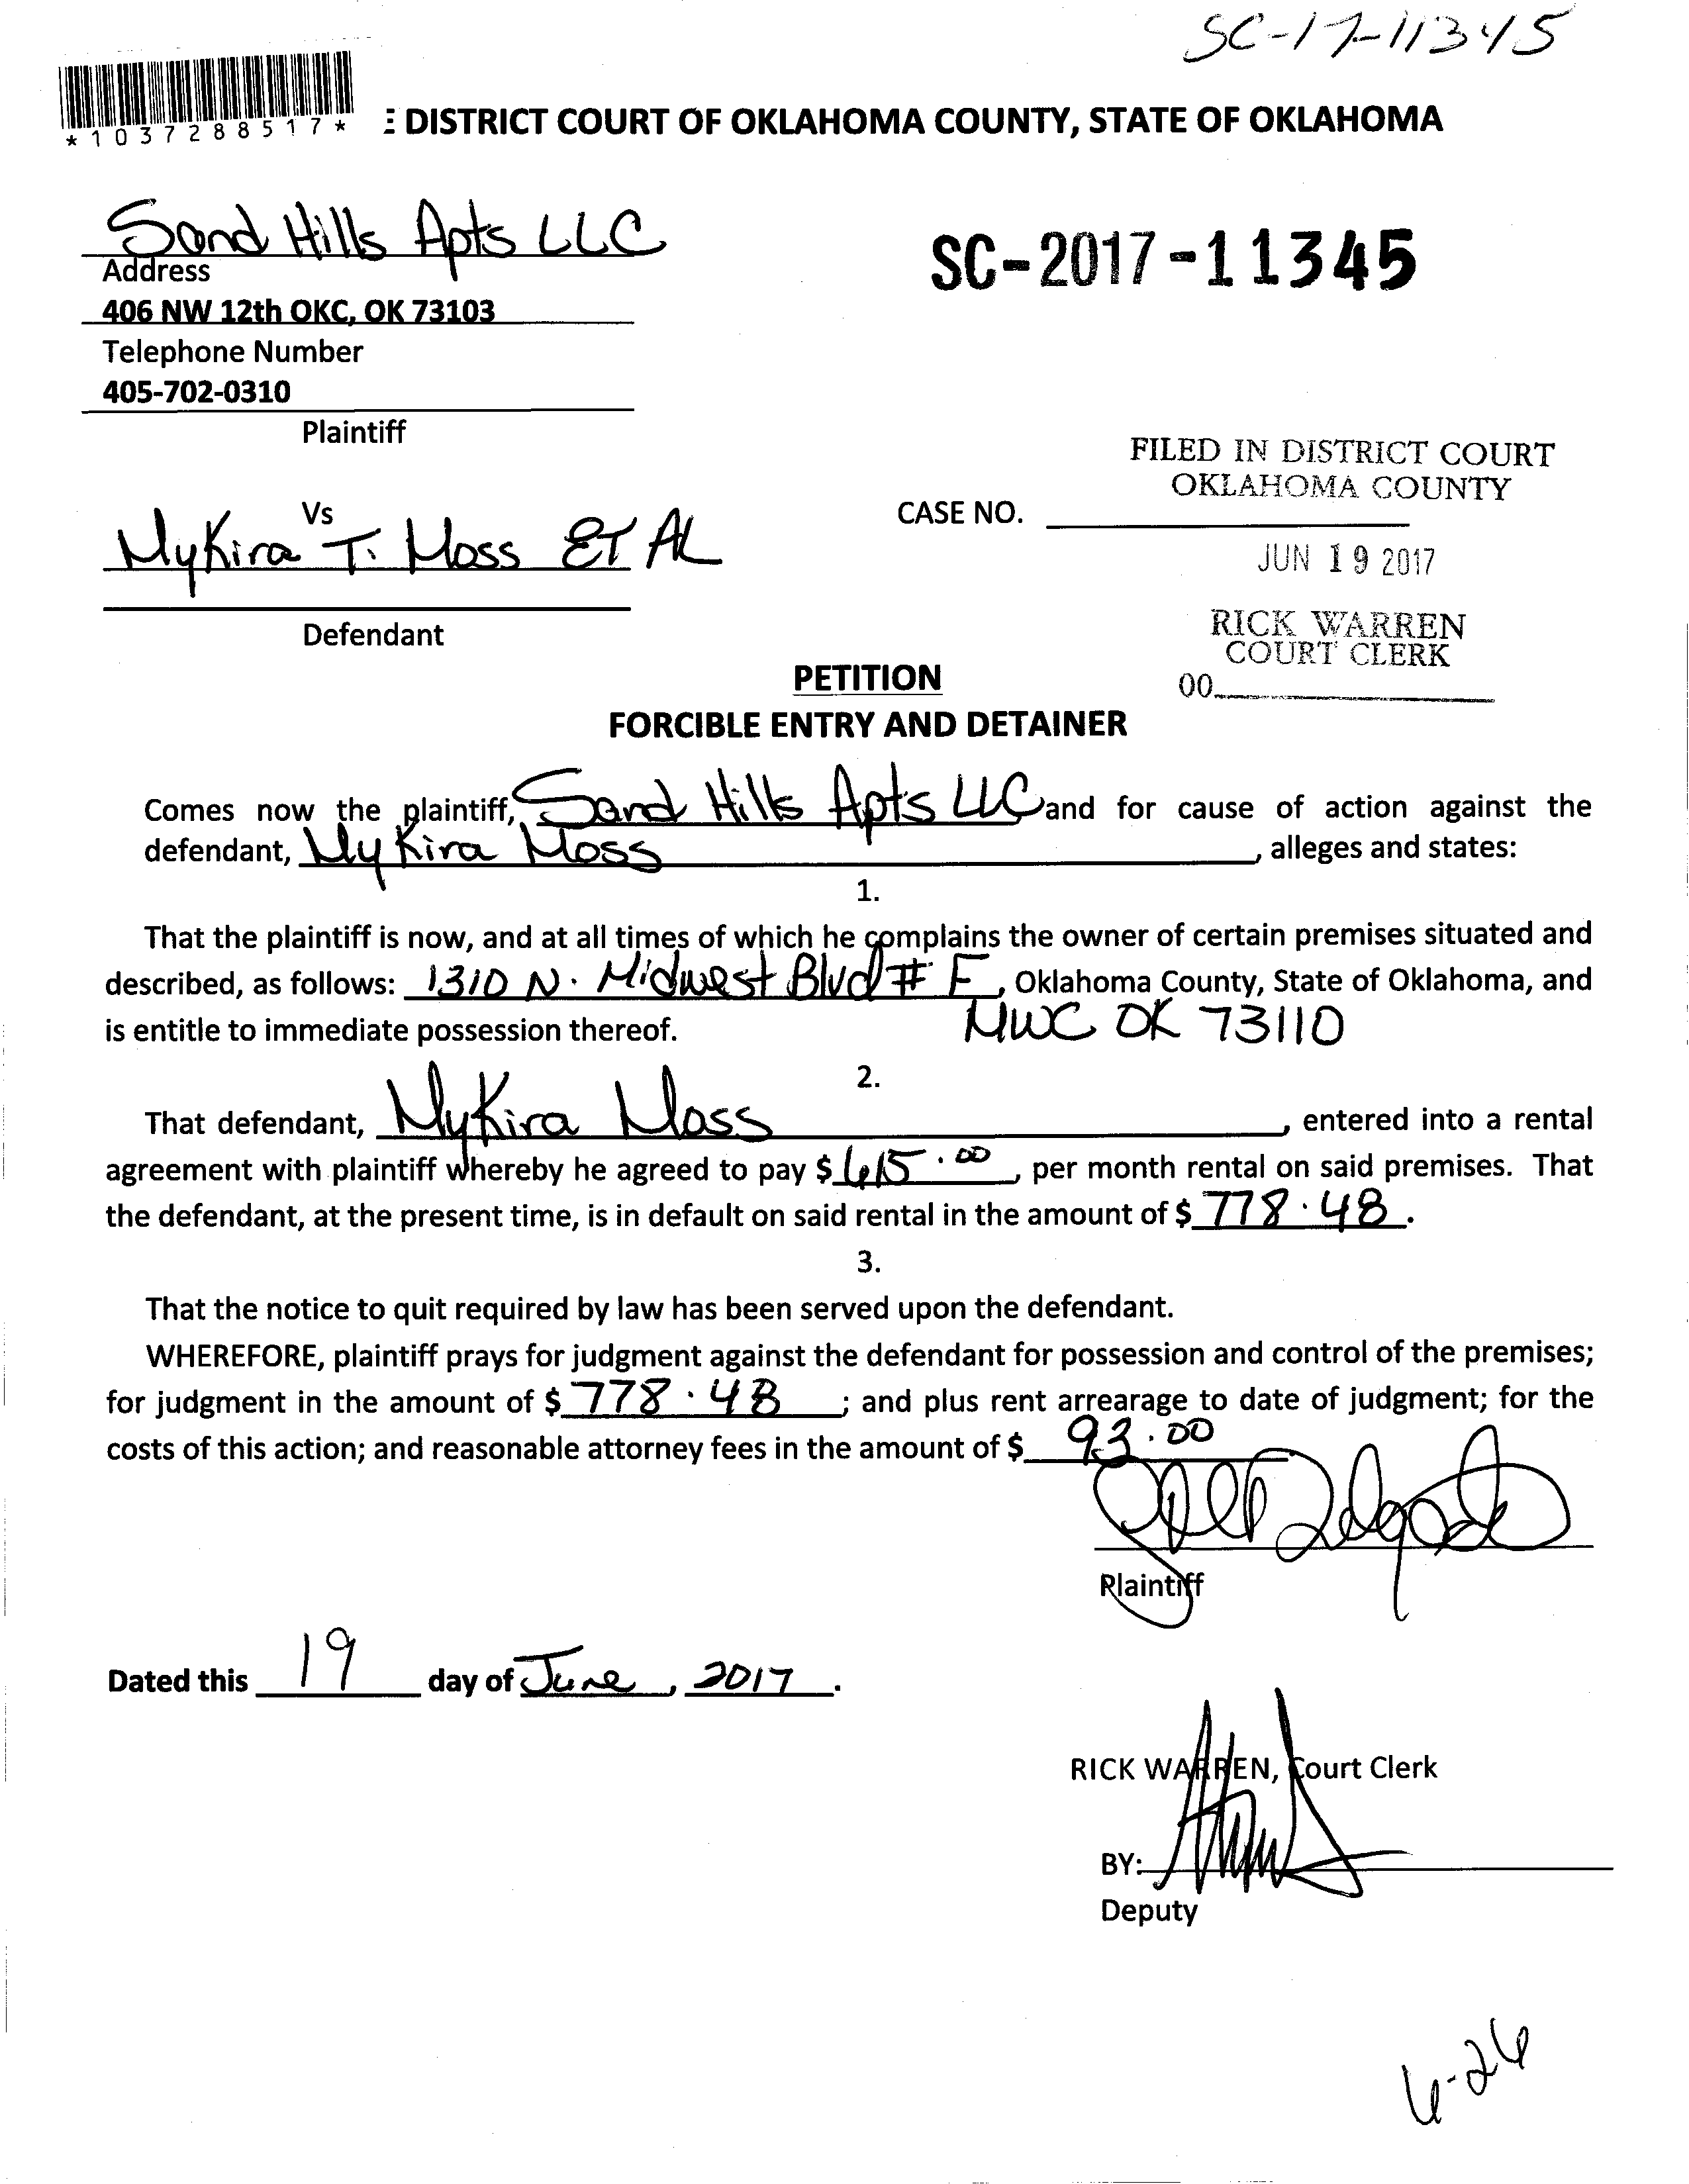 SC-17-11345
*1037288517*
E DISTRICT COURT OF OKLAHOMA COUNTY, STATE OF OKLAHOMA
Sand Hills Apts LLC
Address
406 NW 12th OKC, OK 73103
Telephone Number
405-702-0310
Plaintiff
SC-2017-11345
FILED IN DISTRICT COURT
OKLAHOMA COUNTY
JUN 19 2017
RICK WARREN
COURT CLERK
00
Vs
MyKira T. Moss ET AL
Defendant
CASE NO.
PETITION
FORCIBLE ENTRY AND DETAINER
Comes now the plaintiff, Sand Hills Apts LLC and for cause of action against the
defendant, MyKira Moss, alleges and states:
1.
That the plaintiff is now, and at all times of which he complains the owner of certain premises situated and
described, as follows: 1310 N. Midwest Blvd # F, Oklahoma County, State of Oklahoma, and
is entitle to immediate possession thereof. MWC OK 73110
2.
That defendant, MyKira Moss, entered into a rental
agreement with plaintiff whereby he agreed to pay $ 615.00, per month rental on said premises. That
the defendant, at the present time, is in default on said rental in the amount of $ 778.48.
3.
That the notice to quit required by law has been served upon the defendant.
WHEREFORE, plaintiff prays for judgment against the defendant for possession and control of the premises;
for judgment in the amount of $ 778.48; and plus rent arrearage to date of judgment; for the
costs of this action; and reasonable attorney fees in the amount of $ 93.00
Plaintiff
Dated this 19 day of June, 2017.
RICK WARREN, Court Clerk
BY:
Deputy
6-26